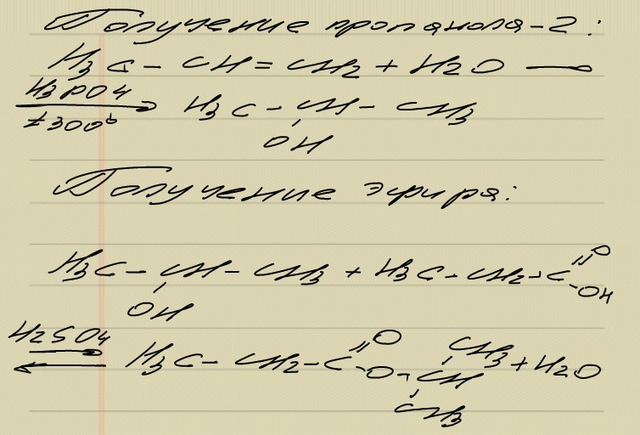 Получение пропанола-2:
H3C - CH = CH2 + H2O —
H3PO4
t300° → H3C - CH - CH3
OH
Получение эфира:
H3C - CH - CH3 + H3C - CH2 - C
=O
-OH
OH
H2SO4
⇄ H3C - CH2 - C =O
-O - CH + H2O
CH3
CH3